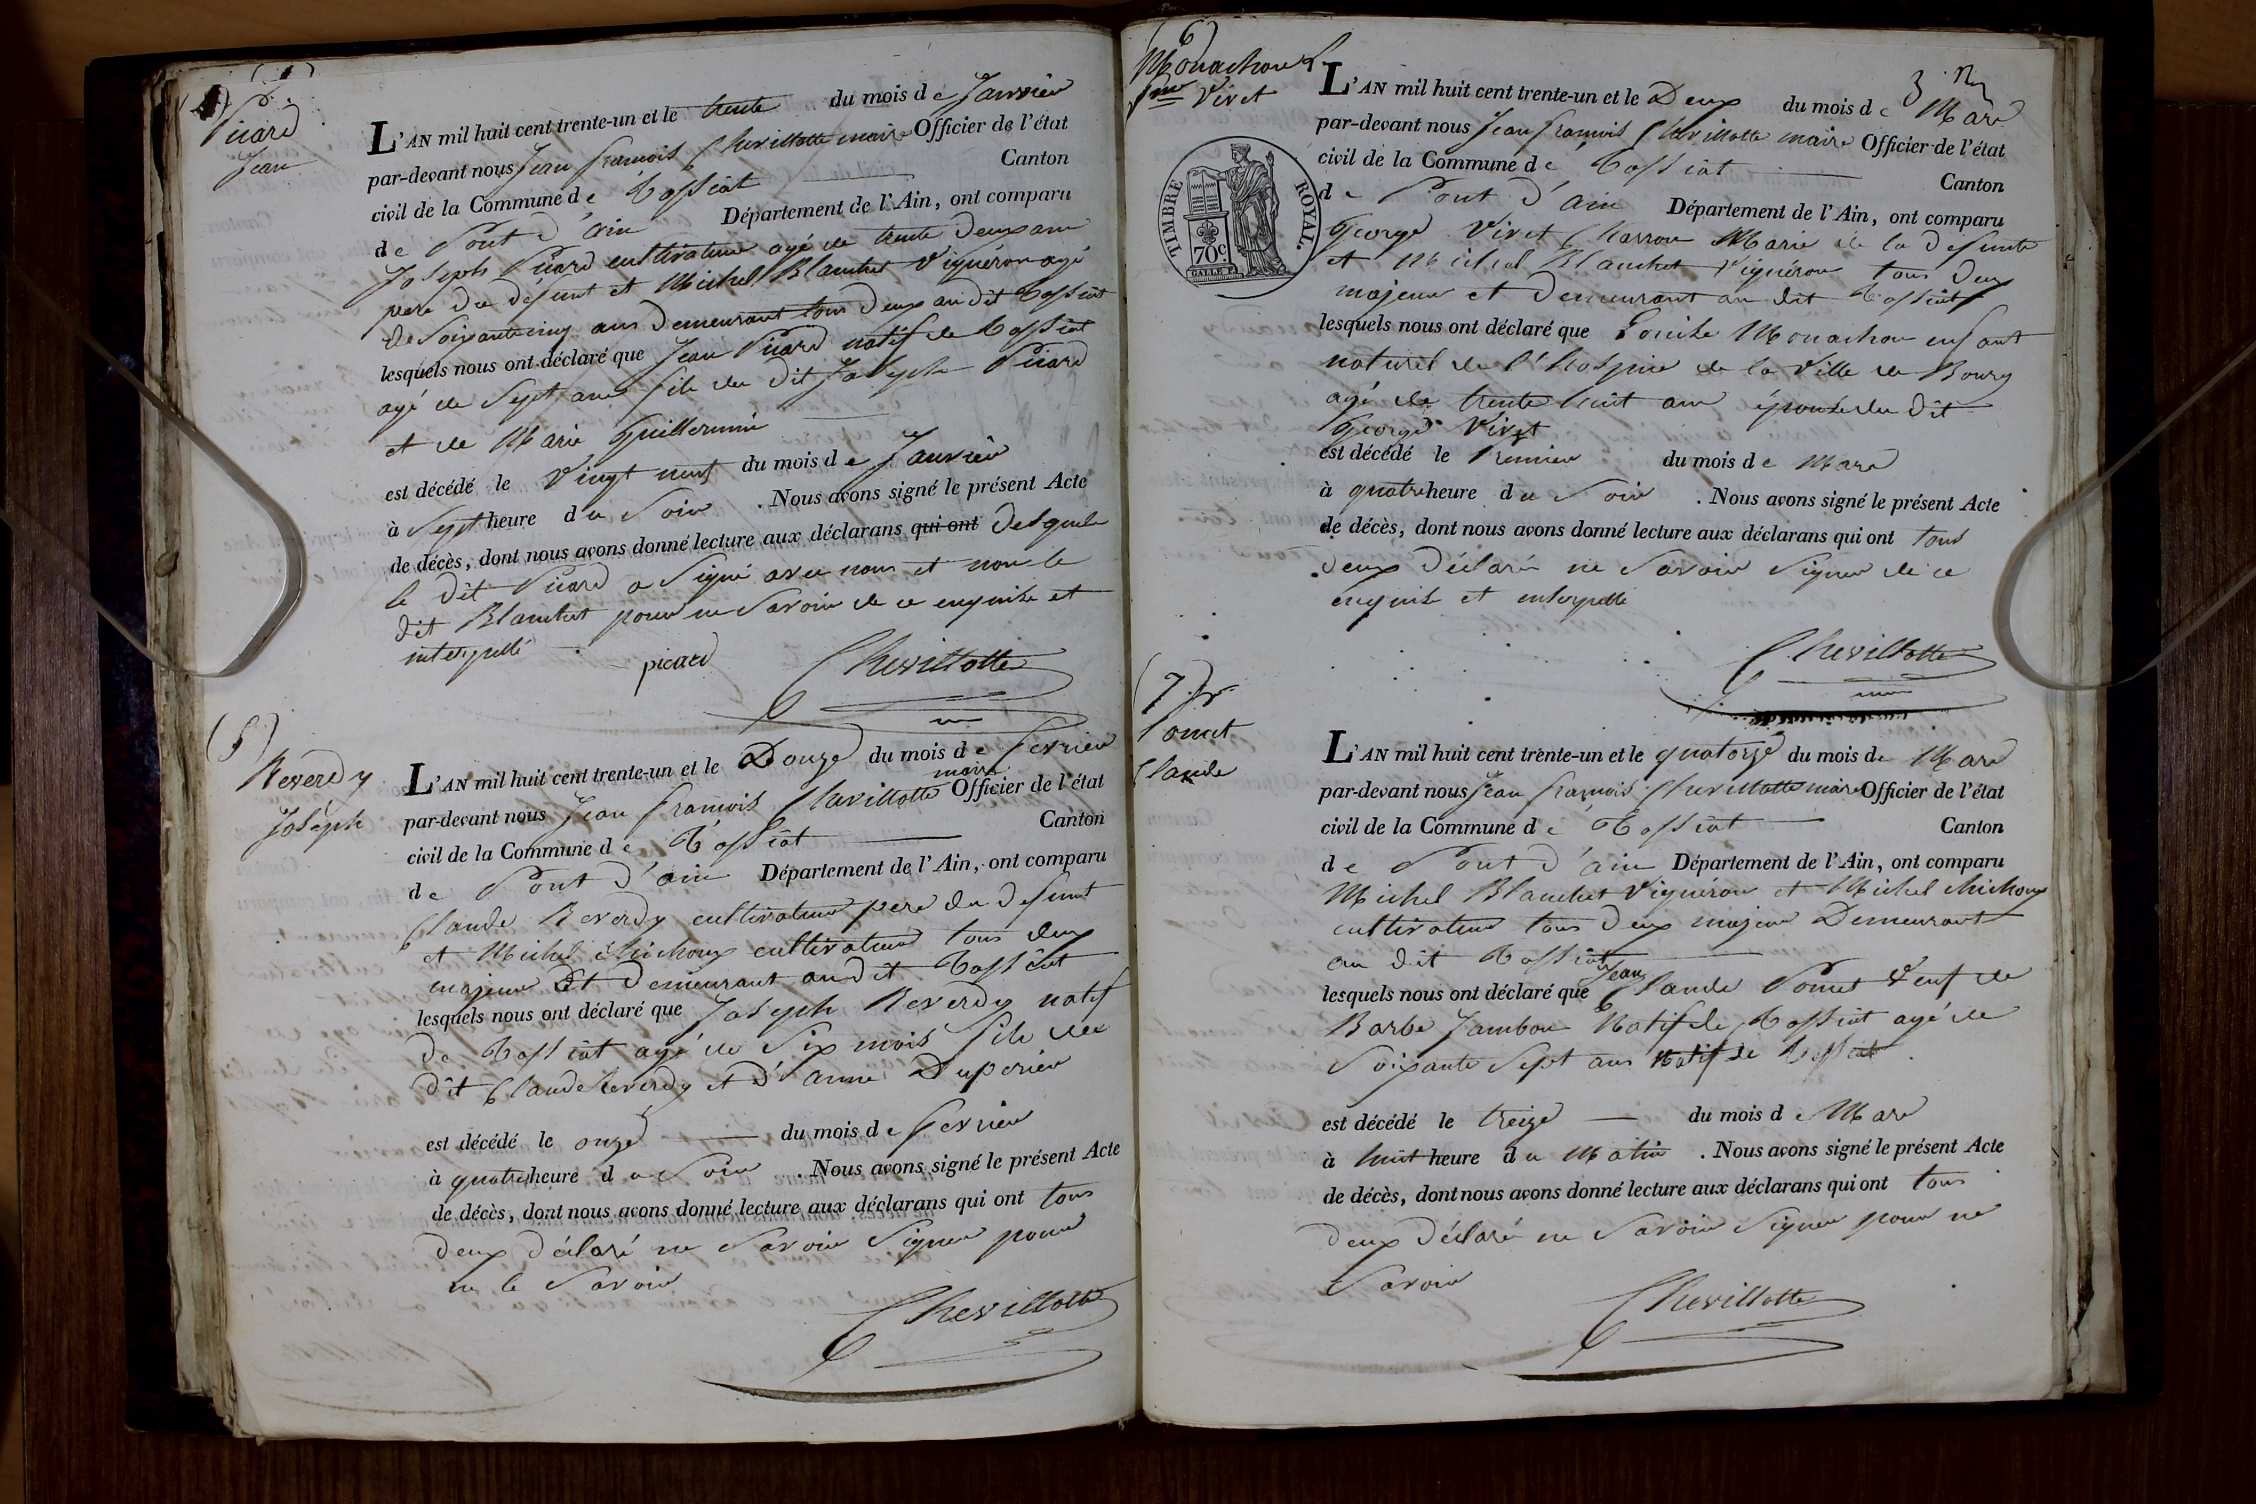 (4)
Picard
Jean
L'AN mil huit cent trente-un et le trente du mois de Janvier
par-devant nous Jean françois Chevillotte maire Officier de l'état
civil de la Commune de Tossiat Canton
de Pont d'ain Département de l'Ain, ont comparu
Joseph Picard cultivateur agé de trente deux ans
pere du défunt et Michel Blanchet Vigneron agé
de Soixante cinq ans demeurant tous deux audit Tossiat
lesquels nous ont déclaré que Jean Picard natif de Tossiat
agé de Sept ans fils du dit Joseph Picard
et de Marie Guillermin
est décédé le Vingt neuf du mois de Janvier
à Sept heure du Soir . Nous avons signé le présent Acte
de décès, dont nous avons donné lecture aux déclarans qui ont desquels
le dit Picard a Signé avec nous et non le
dit Blanchet pour ne Savoir de ce enquis et
interpellé
picard Chevillotte
(5)
Reverdy
Joseph
L'AN mil huit cent trente-un et le Douze du mois de fevrier
par-devant nous Jean françois Chevillotte maire Officier de l'état
civil de la Commune de Tossiat Canton
de Pont d'ain Département de l'Ain, ont comparu
Claude Reverdy cultivateur pere du defunt
et Michel Chichoux cultivateur tous deux
majeur Et Demeurant audit Tossiat
lesquels nous ont déclaré que Joseph Reverdy natif
de Tossiat agé de Six mois fils du
dit Claude Reverdy et d'anne Duperier
est décédé le onze du mois de fevrier
à quatre heure du Soir . Nous avons signé le présent Acte
de décès, dont nous avons donné lecture aux déclarans qui ont tous
deux déclaré ne Savoir Signer pour
ne le Savoir
Chevillotte
(6)
Monachon L.
fme Viret
3
TIMBRE ROYAL.
70c
L'AN mil huit cent trente-un et le Deux du mois de Mars
par-devant nous Jean françois Chevillotte maire Officier de l'état
civil de la Commune de Tossiat Canton
de Pont d'ain Département de l'Ain, ont comparu
George Viret Charron Marie de la defunte
et Michel Blanchet Vigneron tous deux
majeur et demeurant au dit Tossiat
lesquels nous ont déclaré que Louise Monachon enfant
naturel de l'hospice de la Ville de Bourg
agé de trente huit ans épouse du dit
George Viret
est décédé le Premier du mois de Mars
à quatre heure du Soir . Nous avons signé le présent Acte
de décès, dont nous avons donné lecture aux déclarans qui ont tous
deux déclaré ne Savoir Signer de ce
enquis et interpellé
Chevillotte
(7)
Pomet
Claude
L'AN mil huit cent trente-un et le quatorze du mois de Mars
par-devant nous Jean françois Chevillotte maire Officier de l'état
civil de la Commune de Tossiat Canton
de Pont d'ain Département de l'Ain, ont comparu
Michel Blanchet Vigneron et Michel chichoux
cultivateur tous deux majeur Demeurant
au dit Tossiat
lesquels nous ont déclaré que Jean Claude Pomet Veuf de
Barbe Jambon Natif de Tossiat agé de
Soixante Sept ans Natif de Tossiat
est décédé le treize du mois de Mars
à huit heure du Matin . Nous avons signé le présent Acte
de décès, dont nous avons donné lecture aux déclarans qui ont tous
deux déclaré ne Savoir Signer pour ne
Savoir
Chevillotte